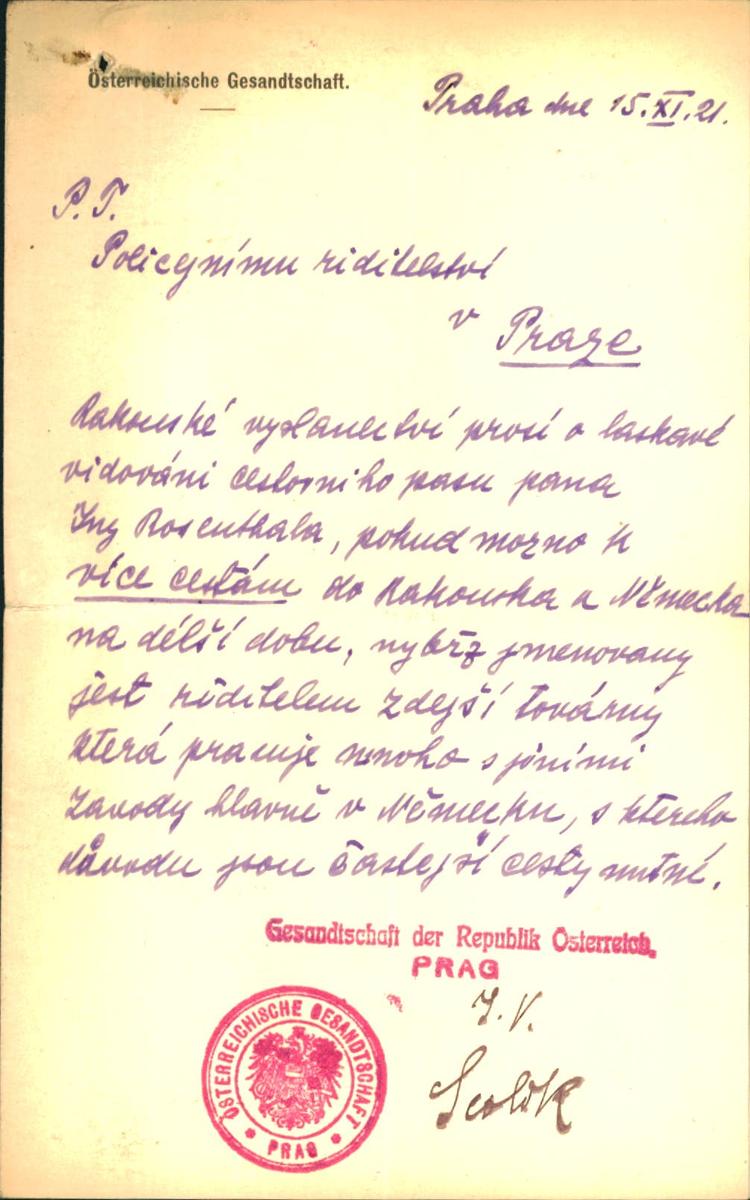 Österreichische Gesandtschaft.
Praha dne 15.XI.21.
P.T.
Policejnímu riditelství
v Praze
Rakouské vyslanectví prosí o laskavé
vidováni cestovniho pasu pana
Ing Rosenthala, pokud mozno k
více cestám do Rakouska a Německa
na délší dobu, nybřz jmenovany
jest riditelem zdejší továrny
která pracuje mnoho s jinimi
závody hlavně v Německu, s kterého
důvodu jsou častejší cesty nutné.
Gesandtschaft der Republik Österreich.
PRAG
I.V.
ÖSTERREICHISCHE GESANDTSCHAFT
PRAG